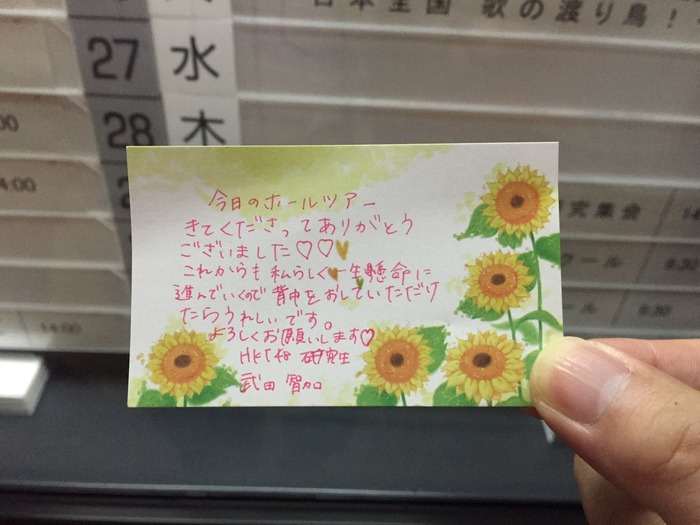 日本全国 歌の渡り鳥！
27 水
28 木
:00
14:00
今日のホールツアー
きてくださってありがとう
ございました♡♡♡
これからも私らしく♥一生懸命に
進んでいくので背中をおしていただけ
たらうれしいです。
よろしくお願いします♡
HKT48 研究生
武田 智加
究集会
8:30
ール 8:30
14:00